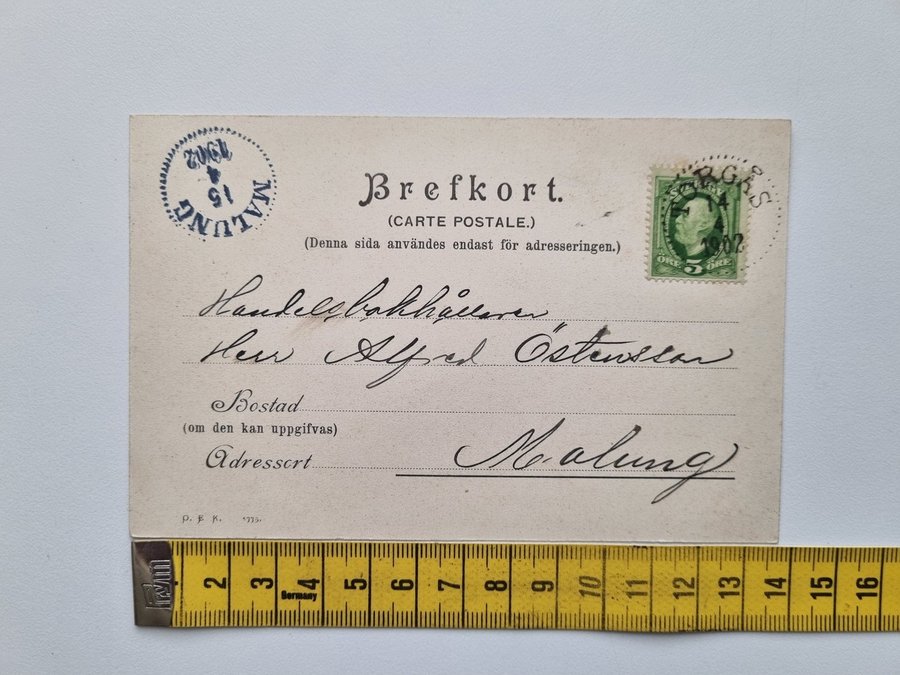 MALUNG
15
4
1902
Brefkort.
(CARTE POSTALE.)
(Denna sida användes endast för adresseringen.)
14
4
1902
5
ÖRE ÖRE
Handelsbokhållaren
Herr Alfred Östensson
Bostad
(om den kan uppgifvas)
Adressort
Malung
D. E. K.
2 3 4 5 6 7 8 9 10 11 12 13 14 15 16
Germany